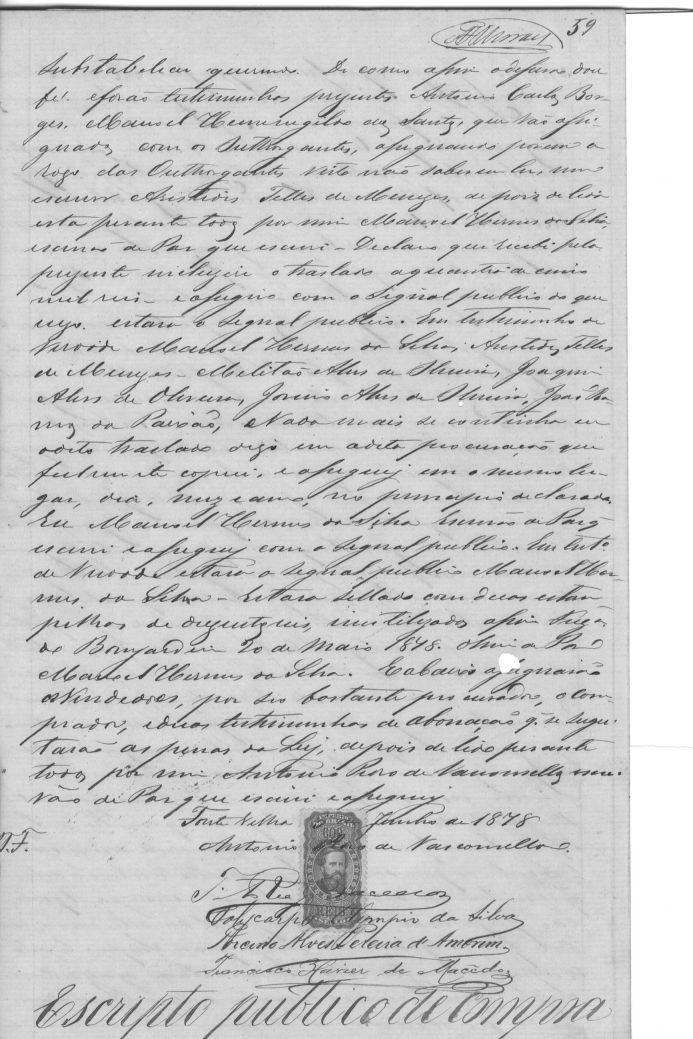 59
substabelecer querendo. De como assim o disserão dou
fé. e forão testimunhas presentes Antonio Carlos Bor-
ges. Manoel Hermenegildo dos Santos, que vão assi-
gnados com os Outhorgantes, assignando porem a
rogo das Outhorgantes visto não saberem ler, nem
escrever Aristides Telles de Menezes, depois de lida
esta perante todos por mim Manoel Hermes da Silva,
escrivão de Paz que escrevi - Declaro que recebi pela
presente inclusive o traslado a quantia de cinco
mil reis - e assigno com o Signal publico de que
uzo. estava o Signal publico. Em testimunho de
Verdade Manoel Hermes da Silva, Aristides Telles
de Menezes - Melitão Alves de Joaquim
Alves de Oliveira, Alves de João
da Paixão, e Nada mais se continha em
o dito traslado digo em a dita procuração que
fielmente copiei, e assignei em o mesmo lu-
gar, dia, mez e anno, no principio declarado
Eu Manoel Hermes da Silva Escrivão de Paz
escrevi e assignei com o Signal publico. Em test.º
de Verdade estava o Signal publico Manoel Her-
mes da Silva - Estava sellado com duas estam-
pilhas de duzentos reis, inutilizadas assim
do Bomjardim 20 de Maio 1878. de Paz
Manoel Hermes da Silva. E abaixo assignarão
os Vendedores, por seo bastante procurador, o com-
prador, e duas testimunhas de abonação q. se sugei-
tarão as penas da Ley, depois de lido perante
todos por mim Antonio de Vasconcellos escri-
vão de Paz que escrevi e assignei
Fonte Velha Junho de 1878
Antonio de Vasconcellos.
T.F.
IMPERIO DO BRAZIL
200
Polycarpo Olympio da Silva
Alves Pereira de Amorim
Francisco Xavier de Macedo
Escripto publico de Compra